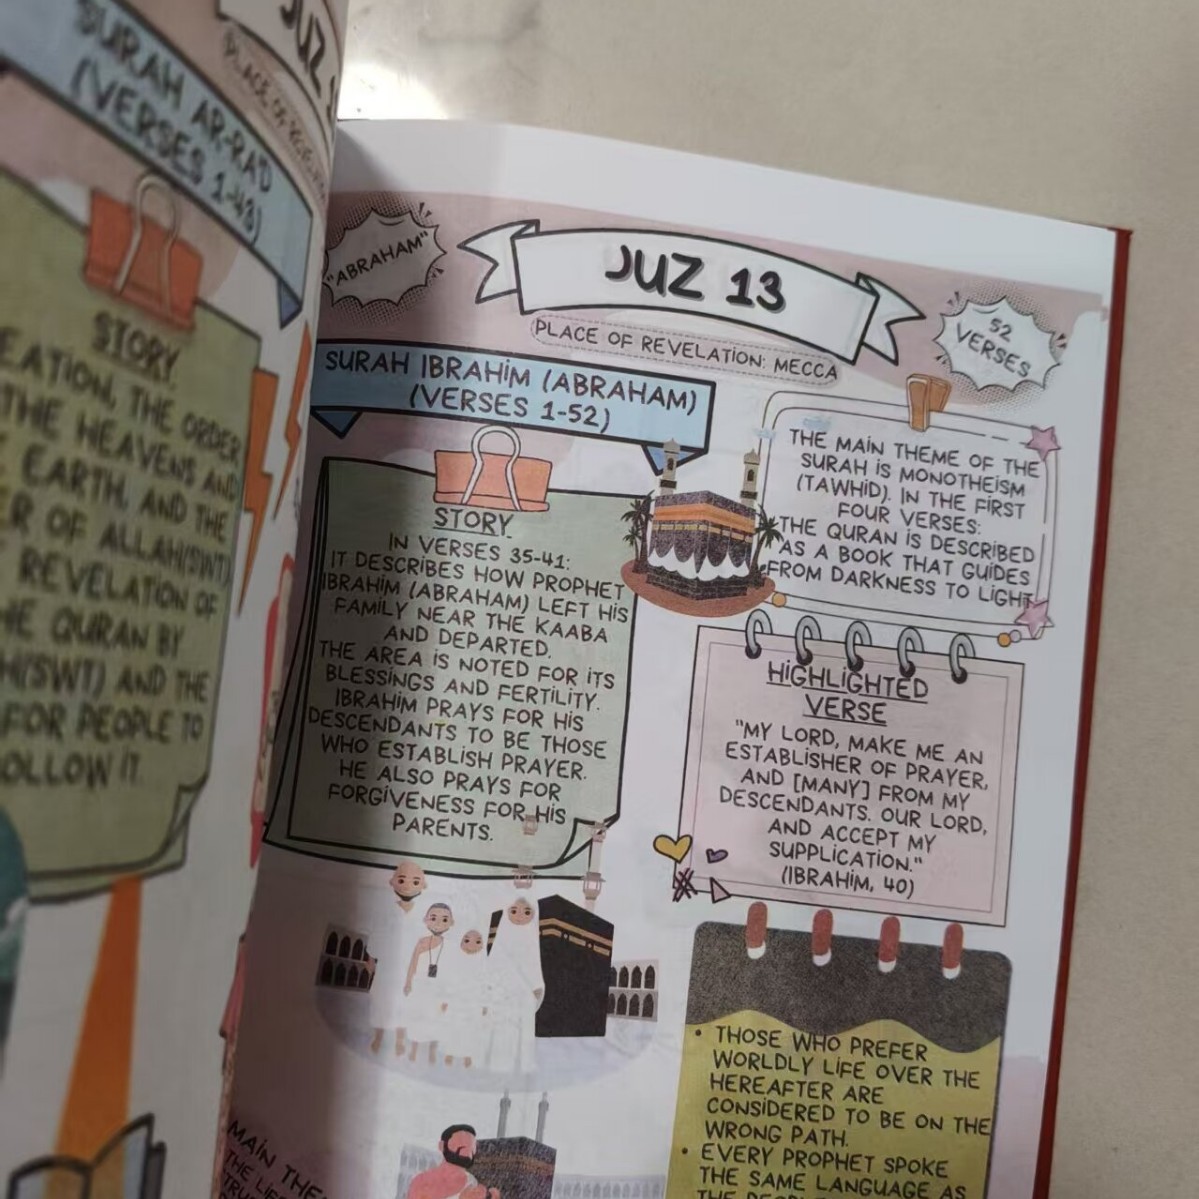 SURAH AR-RA'D
(VERSES 1-43)
STORY
THE ORDER
THE HEAVENS AND
EARTH, AND THE
OF ALLAH(SWT)
REVELATION OF
QURAN BY
AND THE
FOR PEOPLE TO
IT.
"ABRAHAM"
JUZ 13
PLACE OF REVELATION: MECCA
52
VERSES
SURAH IBRAHİM (ABRAHAM)
(VERSES 1-52)
STORY
IN VERSES 35-41:
IT DESCRIBES HOW PROPHET
IBRAHİM (ABRAHAM) LEFT HİS
FAMİLY NEAR THE KAABA
AND DEPARTED.
THE AREA İS NOTED FOR İTS
BLESSİNGS AND FERTİLİTY.
IBRAHİM PRAYS FOR HİS
DESCENDANTS TO BE THOSE
WHO ESTABLİSH PRAYER.
HE ALSO PRAYS FOR
FORGİVENESS FOR HİS
PARENTS.
THE MAİN THEME OF THE
SURAH İS MONOTHEİSM
(TAWHİD). İN THE FİRST
FOUR VERSES:
THE QURAN İS DESCRİBED
AS A BOOK THAT GUİDES
FROM DARKNESS TO LİGHT.
HİGHLİGHTED
VERSE
"MY LORD, MAKE ME AN
ESTABLİSHER OF PRAYER,
AND [MANY] FROM MY
DESCENDANTS. OUR LORD,
AND ACCEPT MY
SUPPLİCATİON."
(IBRAHİM, 40)
• THOSE WHO PREFER
WORLDLY LİFE OVER THE
HEREAFTER ARE
CONSİDERED TO BE ON THE
WRONG PATH.
• EVERY PROPHET SPOKE
THE SAME LANGUAGE AS
MAIN